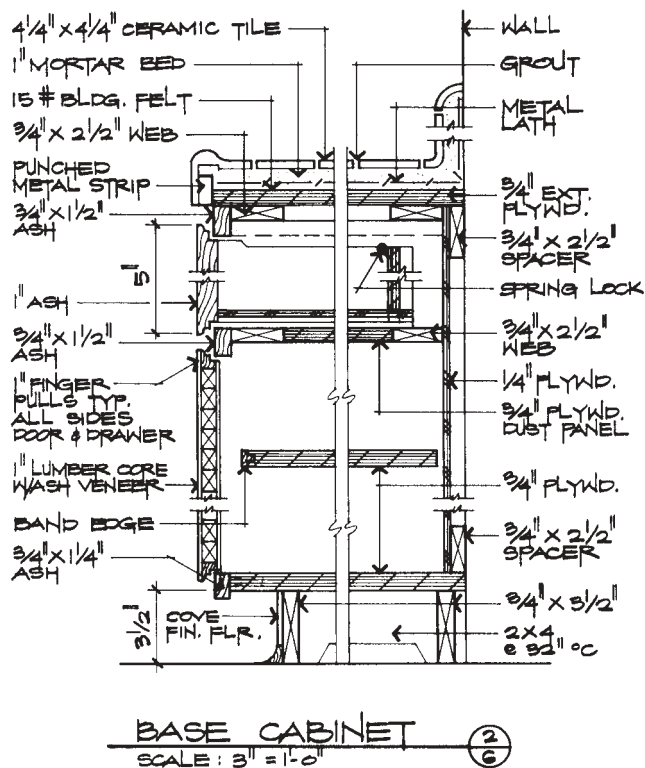 4 1/4" X 4 1/4" CERAMIC TILE
1" MORTAR BED
15 # BLDG. FELT
3/4" X 2 1/2" WEB
PUNCHED
METAL STRIP
3/4" X 1 1/2"
ASH
5"
1" ASH
3/4" X 1 1/2"
ASH
1" FINGER
PULLS TYP.
ALL SIDES
DOOR & DRAWER
1" LUMBER CORE
W/ASH VENEER
BAND EDGE
3/4" X 1 1/4"
ASH
3 1/2"
COVE
FIN. FLR.
WALL
GROUT
METAL
LATH
3/4" EXT.
PLYWD.
3/4" X 2 1/2"
SPACER
SPRING LOCK
3/4" X 2 1/2"
WEB
1/4" PLYWD.
3/4" PLYWD.
DUST PANEL
3/4" PLYWD.
3/4" X 2 1/2"
SPACER
3/4" X 3 1/2"
2 X 4
@ 32" OC
BASE CABINET
SCALE : 3" = 1'-0"
2
6